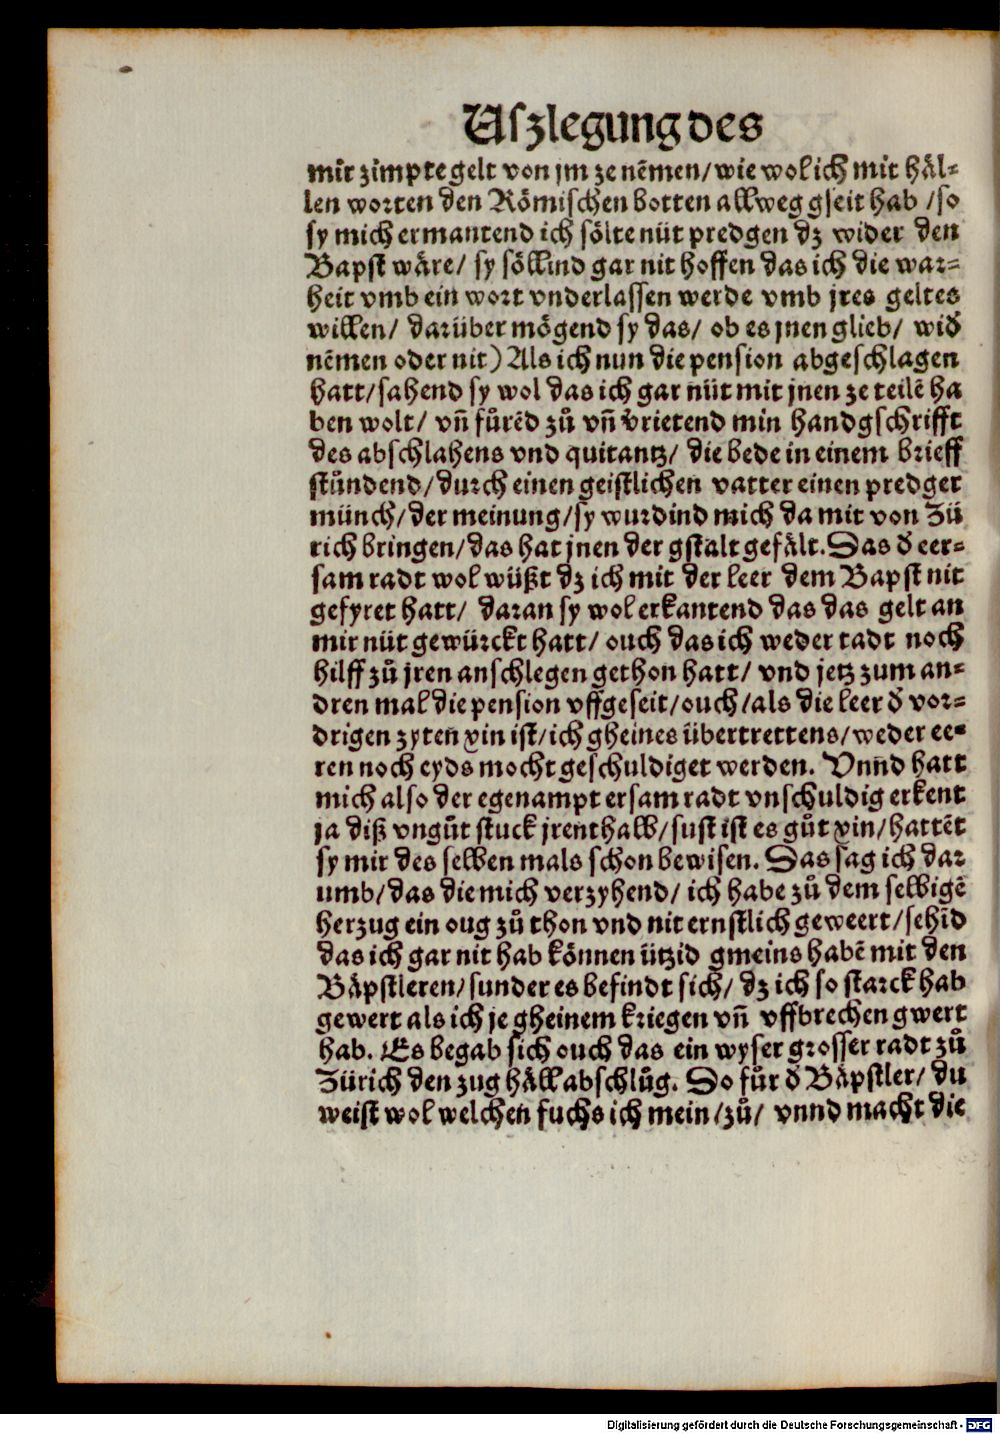 Uſzlegung des
mir zimpte gelt von jm ze nẽmen/ wie wol ich mit häl⸗
len worten den Römiſchen botten allweg gſeit hab /ſo
ſy mich ermantend ich ſölte nüt predgen dz wider den
Bapſt wäre/ ſy ſöllind gar nit hoffen das ich die war⸗
heit vmb ein wort vnderlaſſen werde vmb jres geltes
willen/ darüber mögend ſy das/ ob es jnen glieb/ wid̃
nẽmen oder nit) Als ich nun die penſion abgeſchlagen
hatt/ſahend ſy wol das ich gar nüt mit jnen ze teilẽ ha
ben wolt/ vñ fůrẽd zů vñ ṽrietend min handgſchrifft
des abſchlahens vnd quitantz/ die bede in einem brieff
ſtůndend/durch einen geiſtlichen vatter einen predger
münch/der meinung/ſy wurdind mich da mit von Zü
rich bringen/das hat jnen der gſtalt gefält. Das d̃ eer⸗
ſam radt wol wüßt dz ich mit der leer dem Bapſt nit
gefyret hatt/ daran ſy wol erkantend das das gelt an
mir nüt gewürckt hatt/ ouch das ich weder radt noch
hilff zů jren anſchlegen gethon hatt/ vnd jetz zum an⸗
dren mal die penſion vffgeſeit/ouch/als die leer d̃ vor⸗
drigen zyten xin iſt/ich gheines übertrettens/weder ee⸗
ren noch eyds mocht geſchuldiget werden. Vnnd hatt
mich alſo der egenampt erſam radt vnſchuldig erkent
ja diß vngůt ſtuck jrenthalb/ſuſt iſt es gůt xin/hattẽt
ſy mir des ſelben mals ſchon bewiſen. Das ſag ich dar
umb/das die mich verzyhend/ ich habe zů dem ſelbigẽ
herzug ein oug zů thon vnd nit ernſtlich geweert/ſehẽd
das ich gar nit hab können ützid gmeins habẽ mit den
Bäpſtleren/ſunder es befindt ſich/ dz ich ſo ſtarck hab
gewert als ich je gheinem kriegen vñ vffbrechen gwert
hab. Es begab ſich ouch das ein wyſer groſſer radt zů
Zürich den zug häll abſchlůg. Do fůr d̃ Bäpſtler/ du
weiſt wol welchen fuchs ich mein/zů/ vnnd macht die
Digitalisierung gefördert durch die Deutsche Forschungsgemeinschaft - DFG